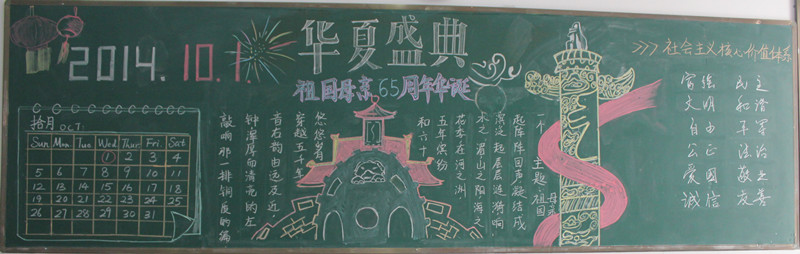 2014.10.1.
华夏盛典
祖国母亲65周年华诞
>>>社会主义核心价值体系
富强 民主
文明 和谐
自由 平等
公正 法治
爱国 敬业
诚信 友善
拾月 OCT:
Sun Mon Tue Wed Thur Fri. Sat
1 2 3 4
5 6 7 8 9 10 11
12 13 14 15 16 17 18
19 20 21 22 23 24 25
26 27 28 29 30 31
一个主题 祖国母亲
起阵阵回声凝结成
荡泛起层层涟漪响
水之湄山之阳海之
花季在河之洲
五年缤纷
和六十
悠悠岁月
穿越五千年
音右韵由远及近，
钟浑厚而清亮的左
敲响那一排铜质的编